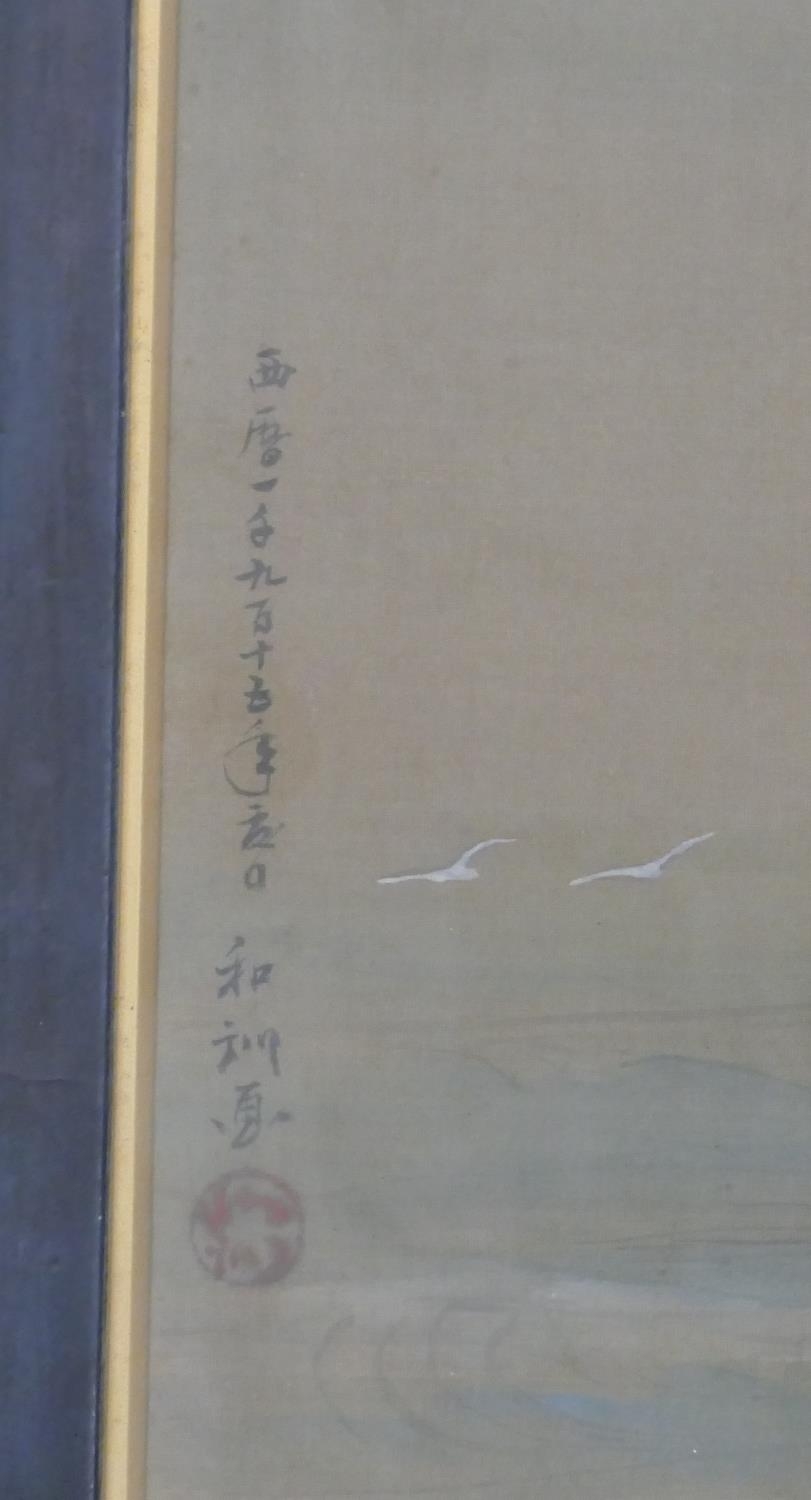 西暦一千九百十五年夏日
和訓画